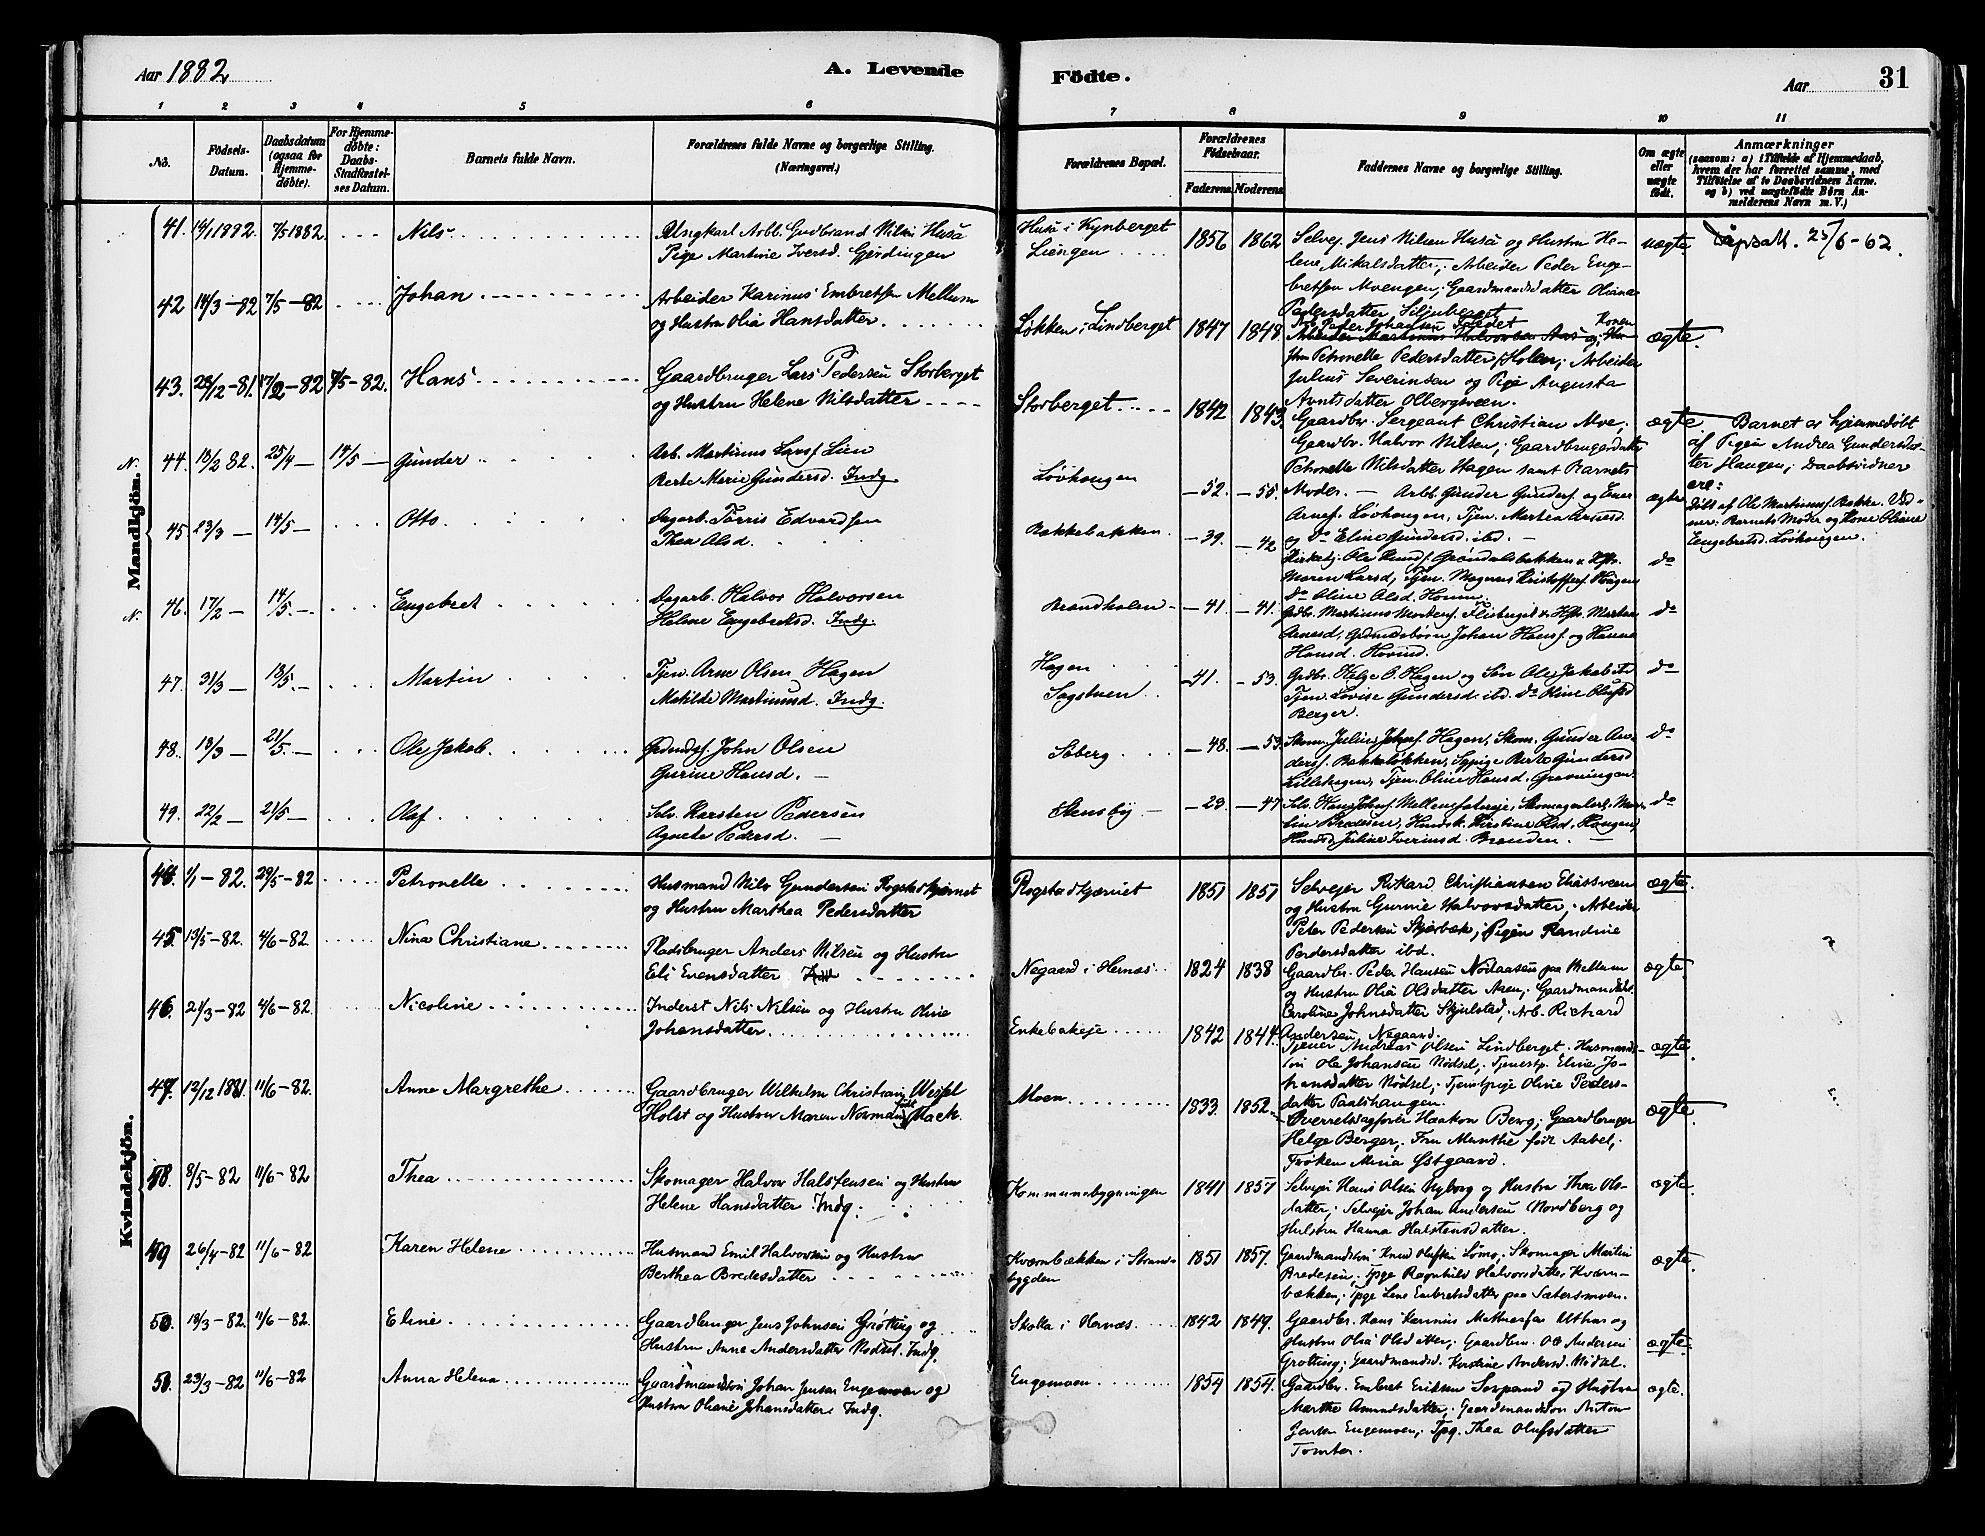 Aar 1882
A. Levende
Födte.
Aar
31
1 2 3 4 5 6 7 8 9 10 11
No.
Födsels-
Datum.
Daabsdatum
(ogsaa for
Hjemme-
døbte).
For Hjemme-
døbte:
Daabs-
Stadfæstel-
ses Datum.
Barnets fulde Navn.
Forældrenes fulde Navne og borgerlige Stilling.
(Næringsvei.)
Forældrenes Bopæl.
Forældrenes
Födselsaar.
Faderens. Moderens.
Faddernes Navne og borgerlige Stilling.
Om ægte
eller
uægte
födt.
Anmærkninger
(saasom: a) i Tilfælde af Hjemmedaab,
hvem der har forrettet samme, med
Tilföielse af to Daabsvidners Navne.
og b) ved uægtefödte Börn An-
melderens Navn m. V.)
Mandkjön.
41. 14/1 1882. 7/5 1882. Nils
Ungkarl Arb. Gudbrand Nilsen Huså
Pige Martine Iversd. Gjerdingen
Husu i Kynberget
Liengen
1856 1862
Selvej. Jens Nilsen Huså og Hustru He-
lene Mikalsdatter; Arbeider Peder Enge-
bretsen Moengen; Gaardmandsdatter Oliana
Pedersdatter Siljuberget
uægte.
25/6-62.
42 14/3-82 7/5-82 Johan
Arbeider Karinus Embretsen Mellum
og Hustru Olia Hansdatter
Løkken i Lindberget
1847 1848.
Petronelle Pedersdatter Holen; Arbeider
Julius Severinsen og Pige Augusta
Arntsdatter Olbergsveen.
ægte.
43. 28/12-81. 17/2-82 7/5-82. Hans
Gaardbruger Lars Pedersen Storberget
og Hustru Helene Nilsdatter
Storberget
1842 1843.
Gaardbr. Sergeant Christian Moe;
Gaardbr. Halvor Nilsen; Gaardbrugerdatter
Petronelle Nilsdatter Hagen samt Barnets
Moder.
ægte.
Barnet er hjemmedøbt
af Pigen Andrea Gundersdat-
ter Haugen; Daabsvidner
ere:
N. 44. 18/2 82. 25/4- 14/5- Gunder
Arb. Martinus Larsf. Lien
Berte Marie Gundersd. Indg.
Løvhaugen
-52. -55.
Arb. Gunder Gunderf. og Ener
Arnef. Løvhaugen, Tjen. Marthea Arnesd.
og do Eline Gundersd. ibd.
ægte
Døbt af Ole Martinusf. Bakke. Vid-
ner: Barnets Moder og Kone Oliane
Engebretsd. Løvhaugen.
45 23/3- 14/5- Otto
Dagarb. Torris Edvardsen
Thea Olsd.
Bakkebakken
-39. -42
Kirketj. Ole Knudf. Grøndalsbakken & Hstr.
Maren Larsd, Tjen. Magnus Kristofferf. Haugen
do Oline Olsd. Homm
do
N. 46. 17/2- 14/5.- Engebret
Dagarb. Halvor Halvorsen
Helene Engebretsd. Indg.
Brandholen
-41. -41.
Arnesd, Grdmdsbørn Johan Hansf. og Hanna
Hansd. Hovind.
do
47. 31/3- 13/5.- Martin
Tjen. Arne Olsen Hagen
Matilde Martinusd. Indg.
Hagen
Sagstuen
-41. -53.
Grdbr. Helge O. Hagen og Søn Ole Jakob ibd
Tjen. Lovise Gundersd. ibd. do Oline Olufsd
Berger.
do
48. 13/3- 21/5.- Ole Jakob.
Grdmdsf. John Olsen
Gurine Hansd.
Søberg
-48. -53.
Skom. Julius Johnsf. Hagen, Skom. Gunder An-
dersf. Bakkeløkken, Tjpige Berte Gundersd
Lillehagen, Tjen. Oline Hansd. Gravningen
do
49. 22/2- 21/5- Olaf
Selv. Karsten Pedersen
Agnete Pedersd.
Stensby
-23. -47
do
Kvindekjön.
44. 1/1-82. 29/5-82 Petronelle
Husmand Nils Gundersen Rogstadkjernet
og Hustru Marthea Pedersdatter
Rogstadkjernet
1851 1851
Selveier Rikard Christiansen Eliassveen
og Hustru Gurine Halvorsdatter; Arbeider
Peter Pedersen Skjærbæk; Pigen Randine
Pedersdatter ibd.
ægte.
45. 13/5-82. 4/6-82 Nina Christiane
Pladsbruger Anders Nilsen og Hustru
Eli Evensdatter
Nøgaard i Hernæs
1824 1838
Gaardbr. Peder Hansen Nordaasen paa Mellum
og Hustru Olia Olsdatter Asen; Gaardmandsd.
Caroline Johnsdatter Skjulstad; Arb. Richard
Andersen, Nøgaard.
ægte
46. 21/3-82 4/6-82. Nicoline
Inderst Nils Nilsen og Hustru Oline
Johansdatter
Enkebakeje
1842 1844.
Tjener Andreas Olsen Lindberget. Husmands-
søn Ole Johansen Nødsel; Tjenestp. Eline Jo-
hansdatter Nødsel; Tjenstpige Oline Peders-
datter Paalshaugen.
ægte.
47. 13/12 1881. 11/6-82. Anna Margrethe
Gaardbruger Wilhelm Christian Wessel
Holst og Hustru Maren Normann født Mack.
Moen
1833. 1852.
Overretssagfører Haakon Berg; Gaardbruger
Helge Berger; Fru Munthe født Aabel;
Frøken Mina Østgaard.
ægte.
48. 8/5-82 11/6-82. Thea
Skomager Halvor Halstensen og Hustru
Helene Hansdatter. Indg.
Kommunebygningen
1841 1857
Selveier Hans Olsen Nyborg og Hustru Thea Ols-
datter; Selveier Johan Andersen Nordberg og
Hustru Hanna Halstensdatter.
ægte.
49 26/4-82 11/6-82. Karen Helene
Husmand Emil Halvorsen og Hustru
Berthea Bredesdatter
Kværnbækken i Strand-
bygden
1851 1857.
Gaardmandssøn Knud Olufsen Lømo; Skomager Martin
Bredesen; Tpge Ragnhild Halvorsdatter Kværn-
bækken; Tpge Lene Embretsdatter paa Sætersmoen.
ægte.
50. 13/3-82. 11/6-82. Eline
Gaardbruger Jens Johnsen Grøtting og
Hustru Anne Andersdatter Nødsel. Indg.
Skolla i Hernæs.
1842 1849.
Hustru Olia Olsdatter; Gaardbr. Ole Andersen
Grøtting; Gaardmandsd. Kirstine Andersd. Nødsel.
ægte.
51. 23/3-82 11/6-82 Anna Helena
Gaardmandssøn Johan Jensen Engemoen og
Hustru Oliane Johansdatter. Indg.
Engemoen
1854 1854.
Gaardbr. Embret Eriksen Sorpand og Hustru
Marthe Amundsdatter; Gaardmandssøn Anton
Jensen Engemoen; Tpg. Thea Olufsdatter
Tomter.
ægte.